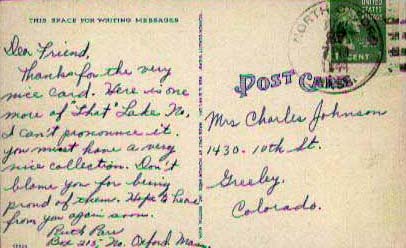 THIS SPACE FOR WRITING MESSAGES
Dear Friend,
Thanks for the very
nice card. Here is one
more of "That" Lake No,
I can't pronounce it.
you must have a very
nice collection. Don't
blame you for being
proud of them. Hope to hear
from you again soon.
Ruth Parr
Box 215, No. Oxford Mass.
NORTH
UNITED STATES
CENT
POST CARD
Mrs Charles Johnson
1430-10th St.
Greeley.
Colorado.